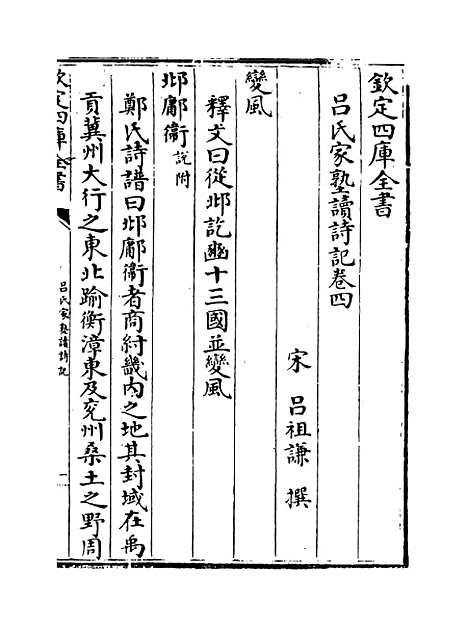 欽定四庫全書
呂氏家塾讀詩記卷四
宋 呂祖謙 撰
變風
釋文曰從邶訖豳十三國並變風
邶鄘衞說附
鄭氏詩譜曰邶鄘衞者商紂畿内之地其封域在禹
貢冀州大行之東北踰衡漳東及兖州桑土之野周
欽定四庫全書
呂氏家塾讀詩記
一